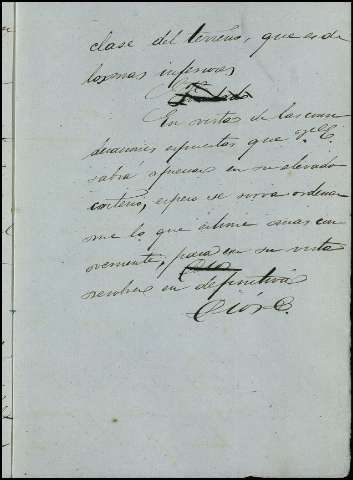 clase del terreno, que es de
los mas inferiores
En vista de las consi
deraciones espuestas que V. E.
sabrá apreciar en su elevado
criterio, espero se sirva ordenar
me lo que estime mas con
veniente, para en su vista
resolver en definitiva
Dios &.